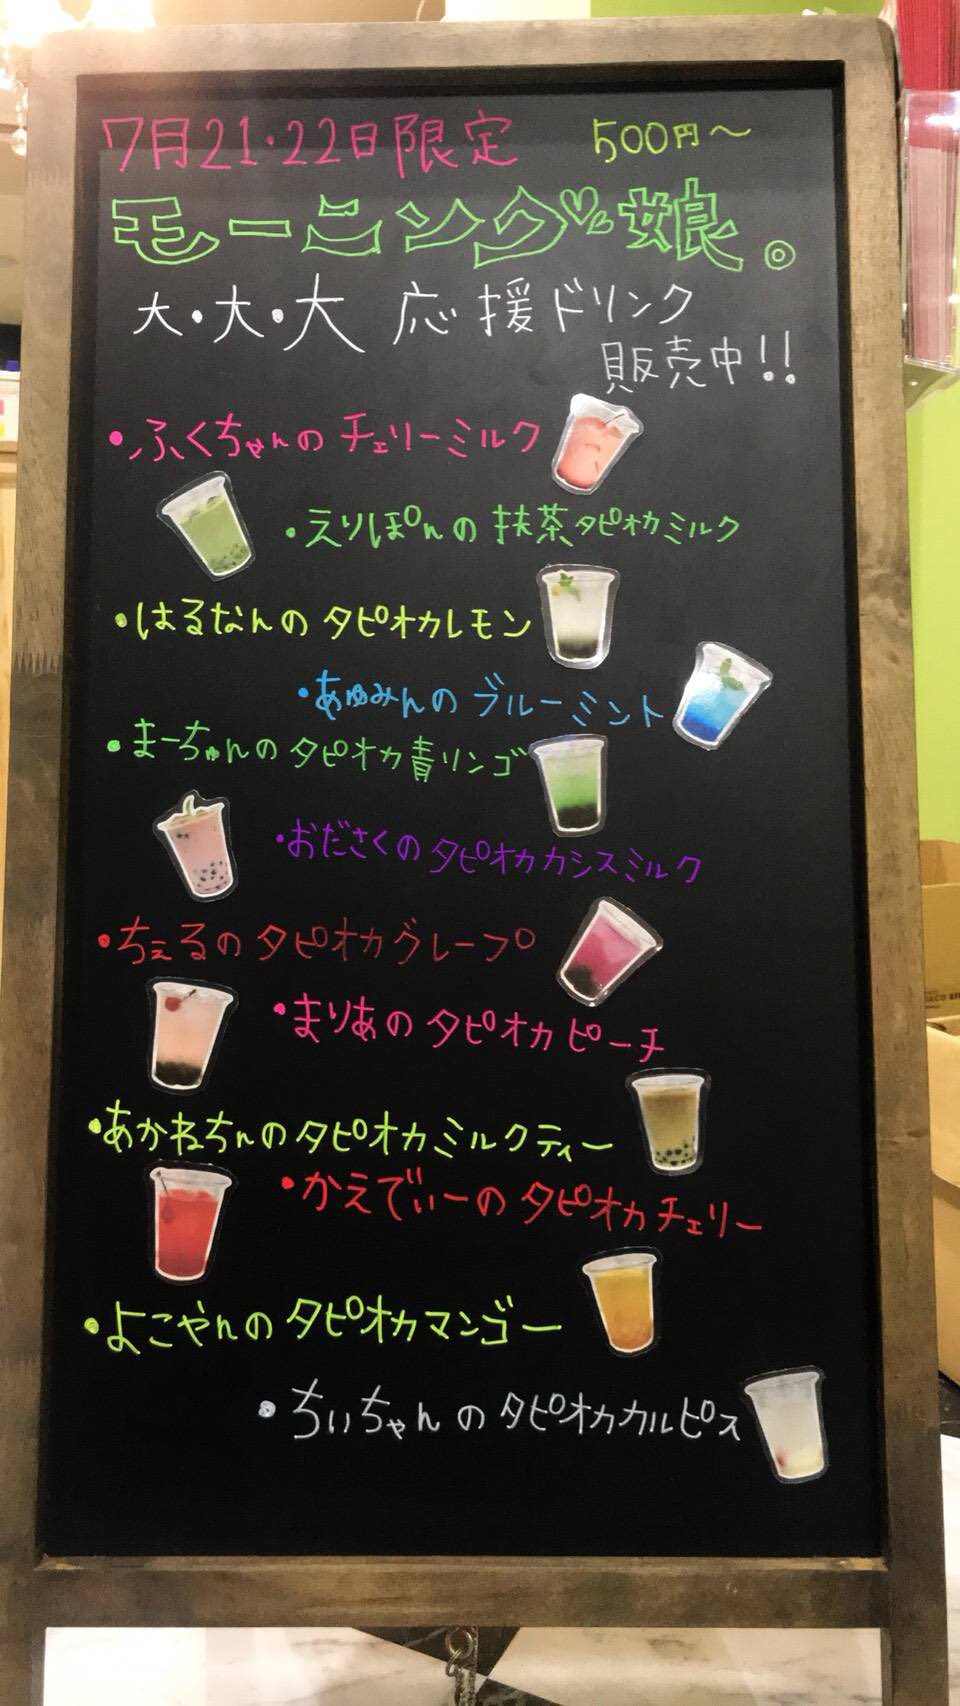 7月21・22日限定 500円〜
モーニング♡娘。
大・大・大 応援ドリンク
販売中!!
・ふくちゃんの チェリーミルク
・えりぽんの 抹茶タピオカミルク
・はるなんの タピオカレモン
・あゆみんの ブルーミント
・まーちゃんの タピオカ青リンゴ
・おださくの タピオカカシスミルク
・ちぇるの タピオカグレープ
・まりあの タピオカピーチ
・あかねちんの タピオカミルクティー
・かえでぃーの タピオカチェリー
・よこやんの タピオカマンゴー
・ちぃちゃんの タピオカカルピス